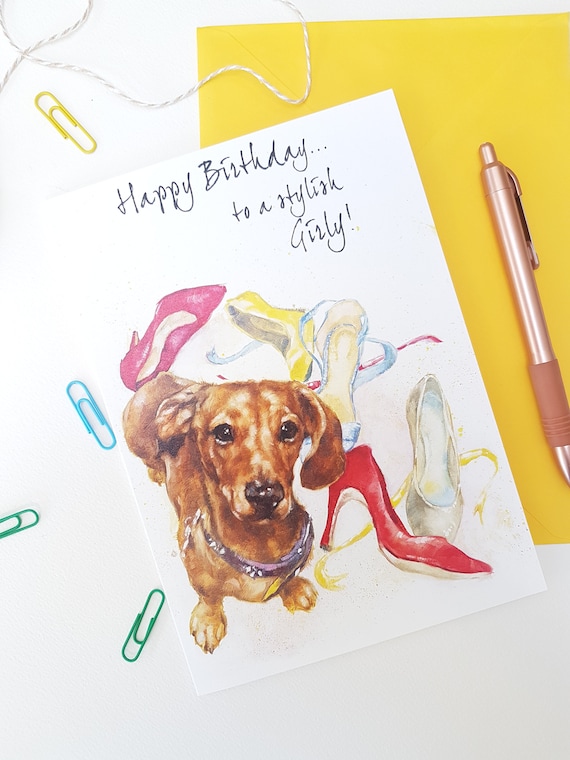 Happy Birthday...
to a stylish
Girly!